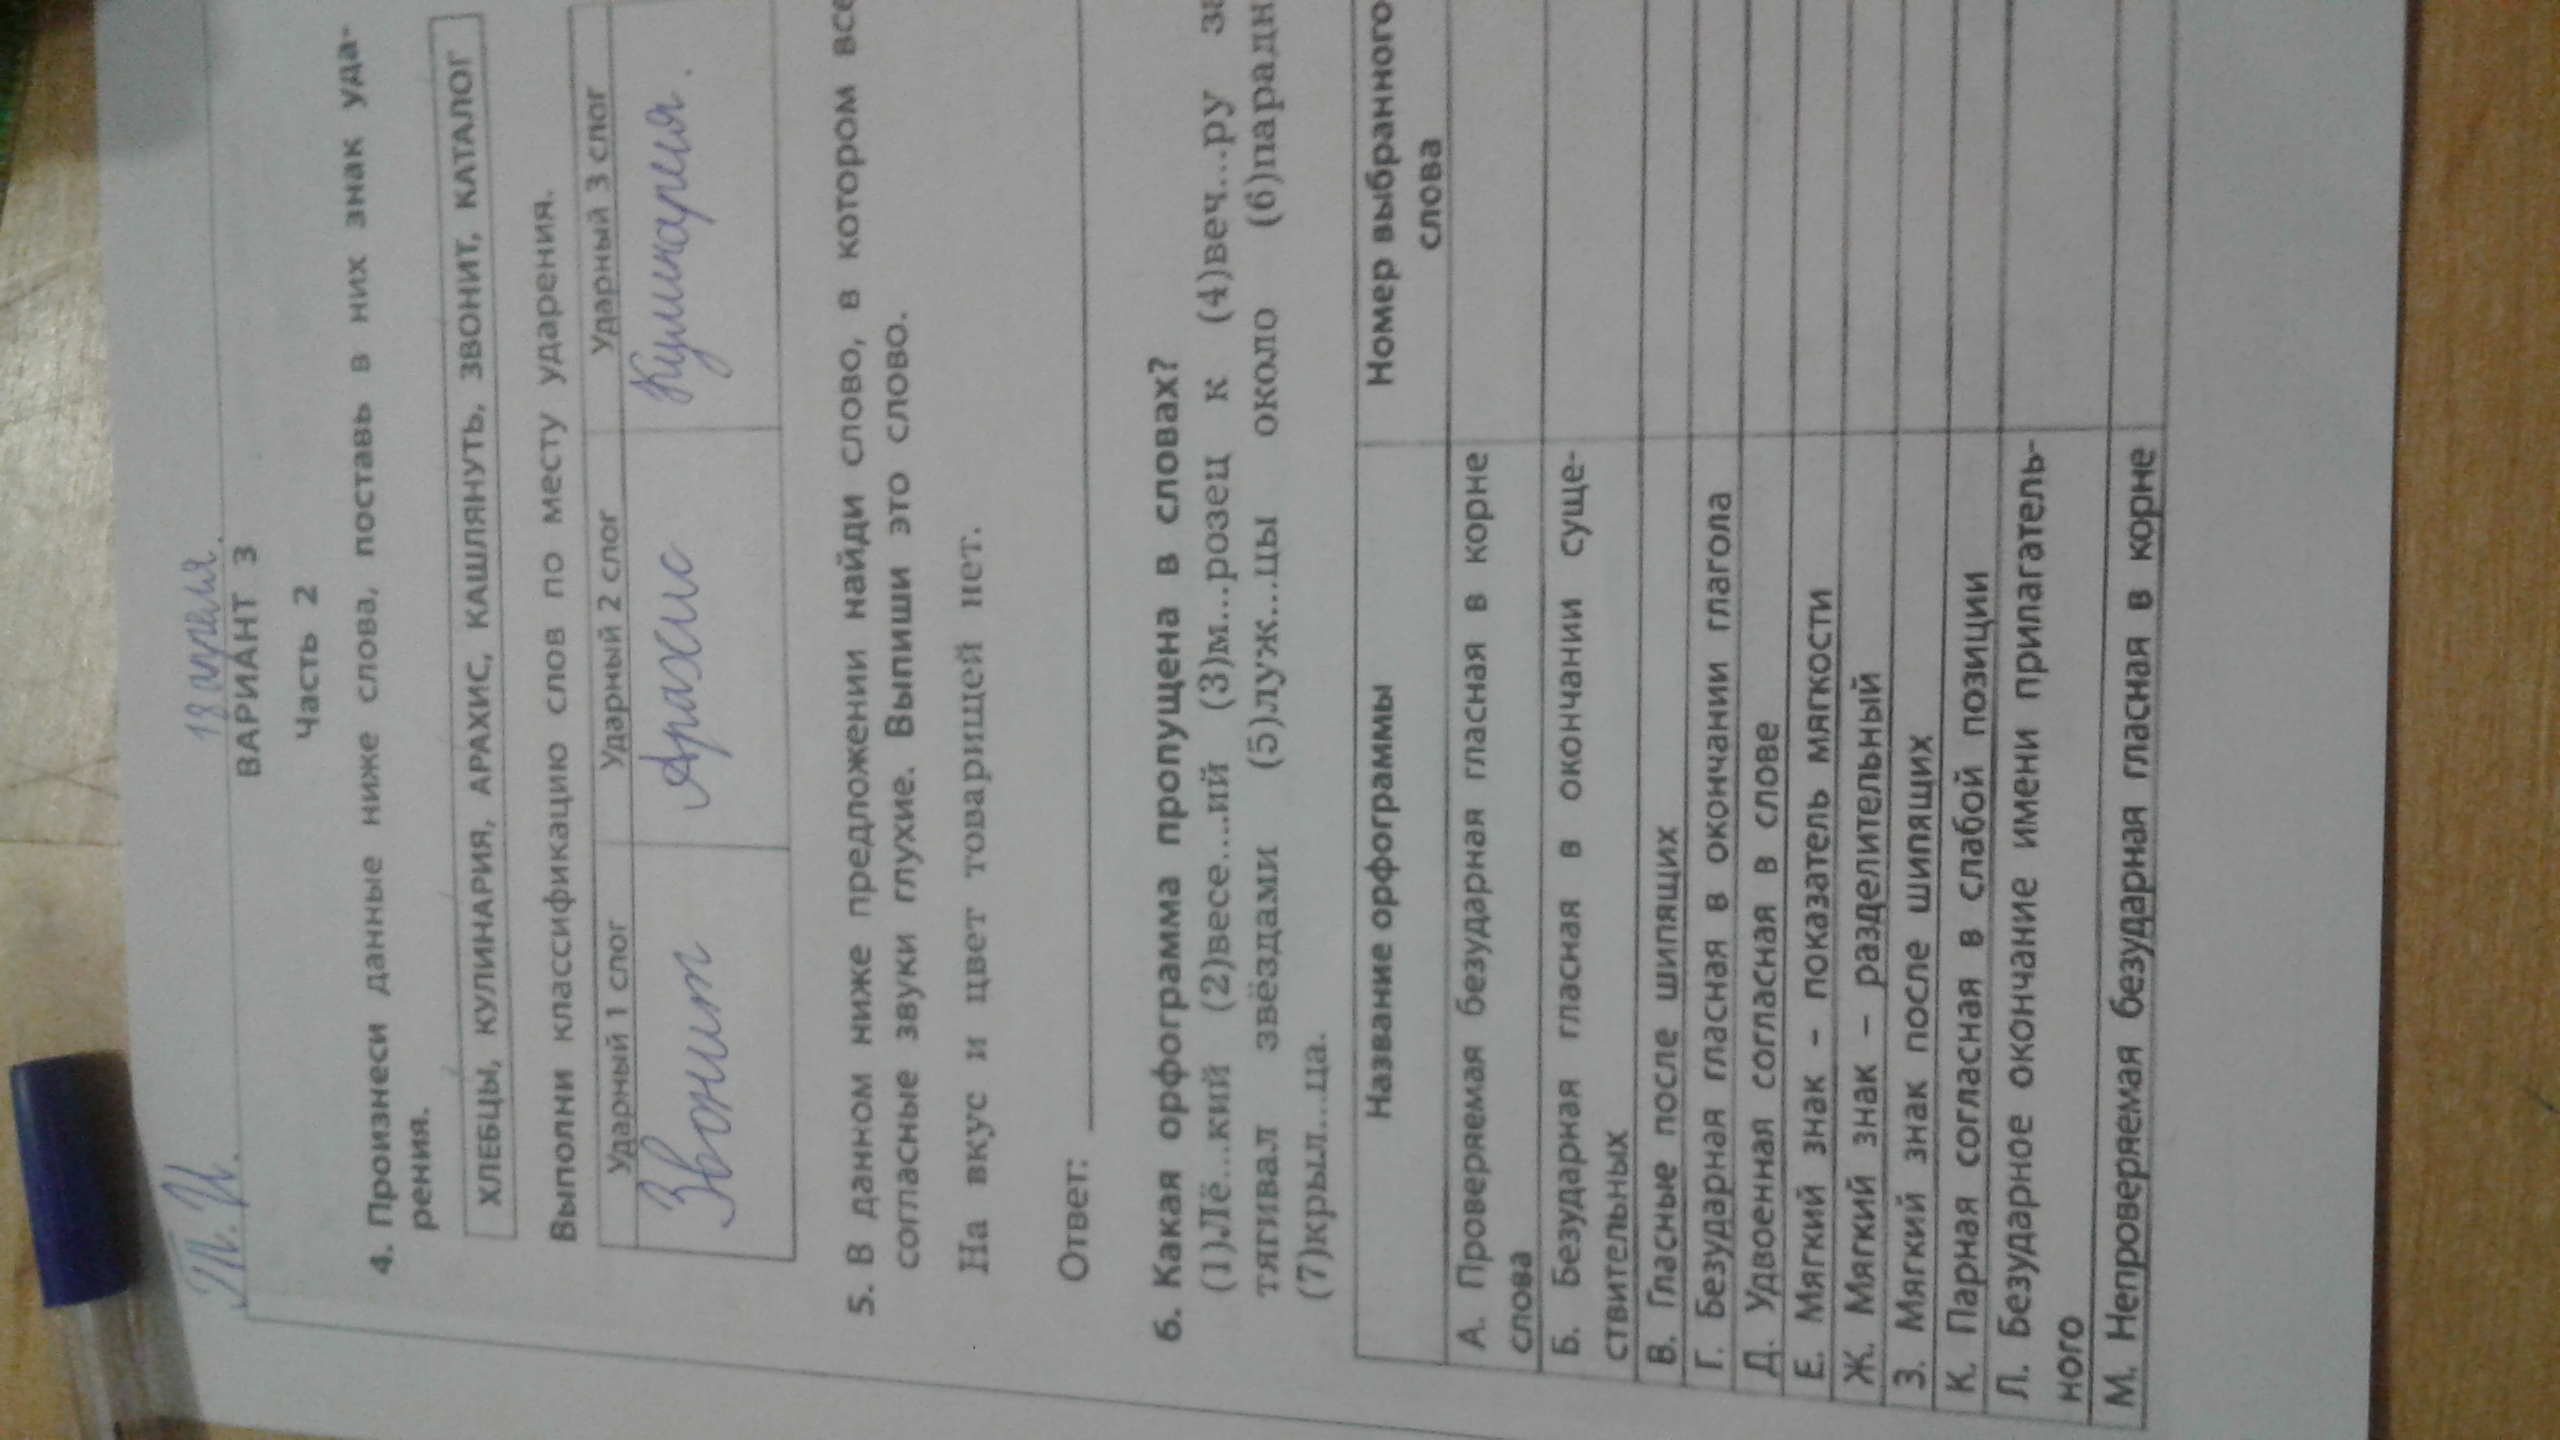 П. И.
18 апреля.
ВАРИАНТ 3
Часть 2
4. Произнеси данные ниже слова, поставь в них знак уда-
рения.
ХЛЕБЦЫ, КУЛИНАРИЯ, АРАХИС, КАШЛЯНУТЬ, ЗВОНИТ, КАТАЛОГ
Выполни классификацию слов по месту ударения.
Ударный 1 слог Ударный 2 слог Ударный 3 слог
Звонит Арахис Кулинария.
5. В данном ниже предложении найди слово, в котором все
согласные звуки глухие. Выпиши это слово.
На вкус и цвет товарищей нет.
Ответ:
6. Какая орфограмма пропущена в словах?
(1)Лё...кий (2)весе....ий (3)м...розец к (4)веч...ру за
тягивал звёздами (5)луж...цы около (6)парадн
(7)крыл...ца.
Название орфограммы Номер выбранного
слова
А. Проверяемая безударная гласная в корне
слова
Б. Безударная гласная в окончании суще-
ствительных
В. Гласные после шипящих
Г. Безударная гласная в окончании глагола
Д. Удвоенная согласная в слове
Е. Мягкий знак – показатель мягкости
Ж. Мягкий знак – разделительный
З. Мягкий знак после шипящих
К. Парная согласная в слабой позиции
Л. Безударное окончание имени прилагатель-
ного
М. Непроверяемая безударная гласная в корне